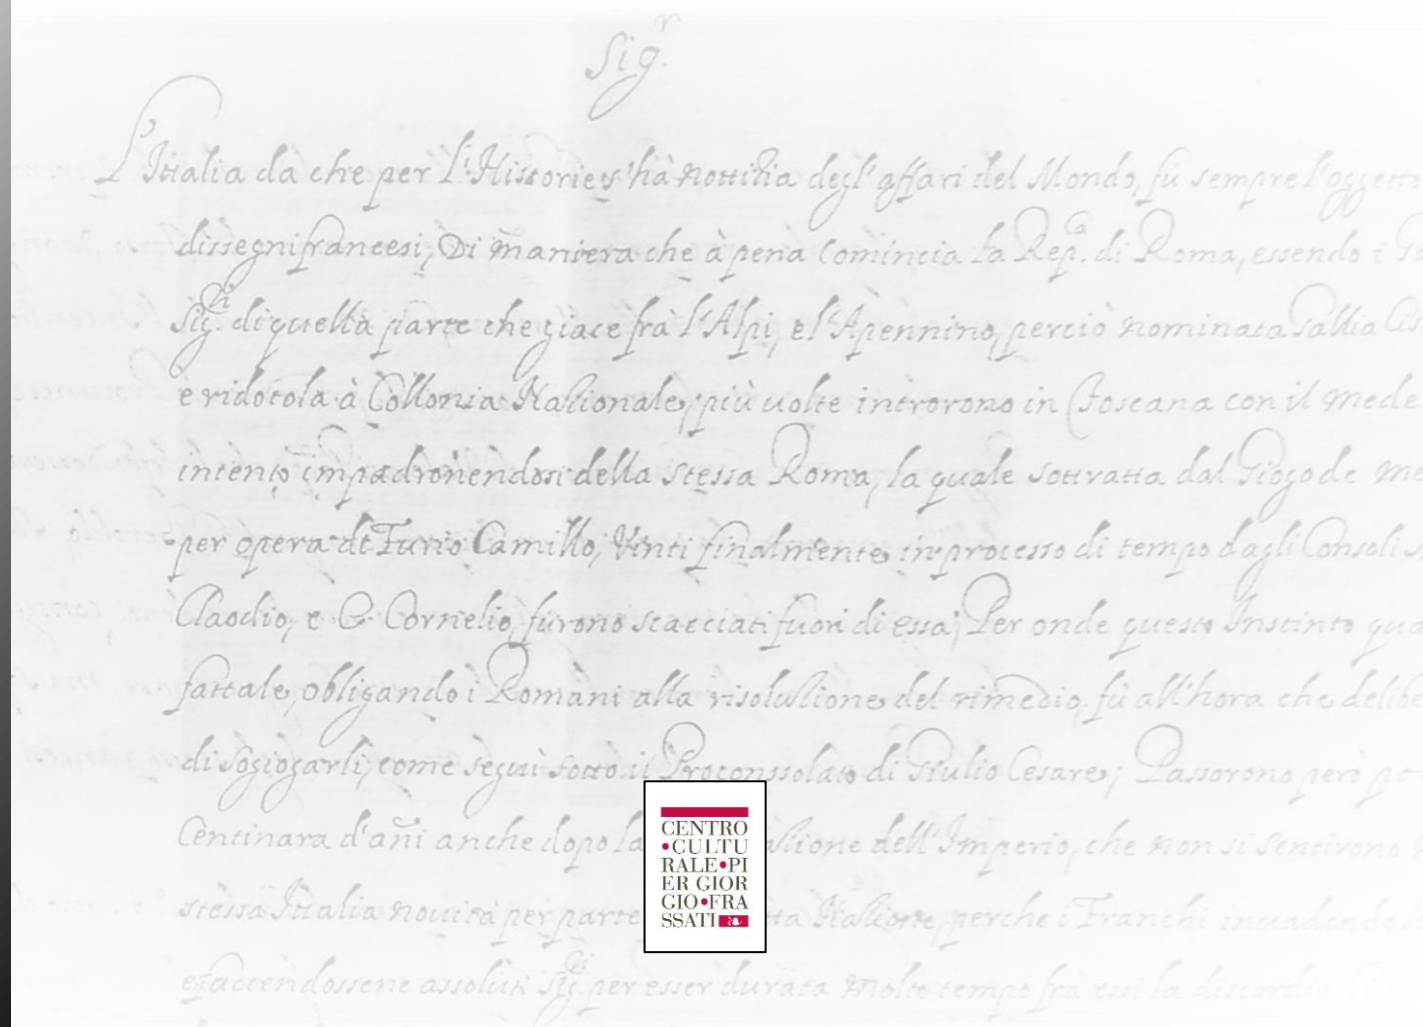 Sig.r
L'Ittalia da che per l'Historie s'hà nottitia degl'affari del Mondo, fù sempre l'oggetto
dissegni francesi, Di maniera che à pena comincia la Rep.a di Roma, essendo i
Sig.ri di quella parte che giace frà l'Alpi, e l'Apennino, perciò nominata Gallia
e ridotola à Collonia Nationale, più uolte introrono in Toscana con il mede
intento impadronendosi della stessa Roma, la quale sottratta dal Giogo de
per opera di Furio Camillo, Vinti finalmente in processo di tempo dagli Consoli
Claodio, e G. Cornelio, furono scacciati fuori di essa; Per onde questo Instinto qua
fattale, obligando i Romani alla risolutione del rimedio, fù all'hora che delibe
di Sogiogarli, come seguì sotto il Proconssolato di Giulio Cesare; Passorono però po
Centinara d'añi anche dopo la dell'Imperio, che non si sentirono
stessa Ittalia nouità per parte Natione, perche i Franchi inuadendo
e faccendossene assoluti Sig.ri per esser durata molto tempo frà essi la discordia
CENTRO
•CULTU
RALE•PI
ER GIOR
GIO•FRA
SSATI